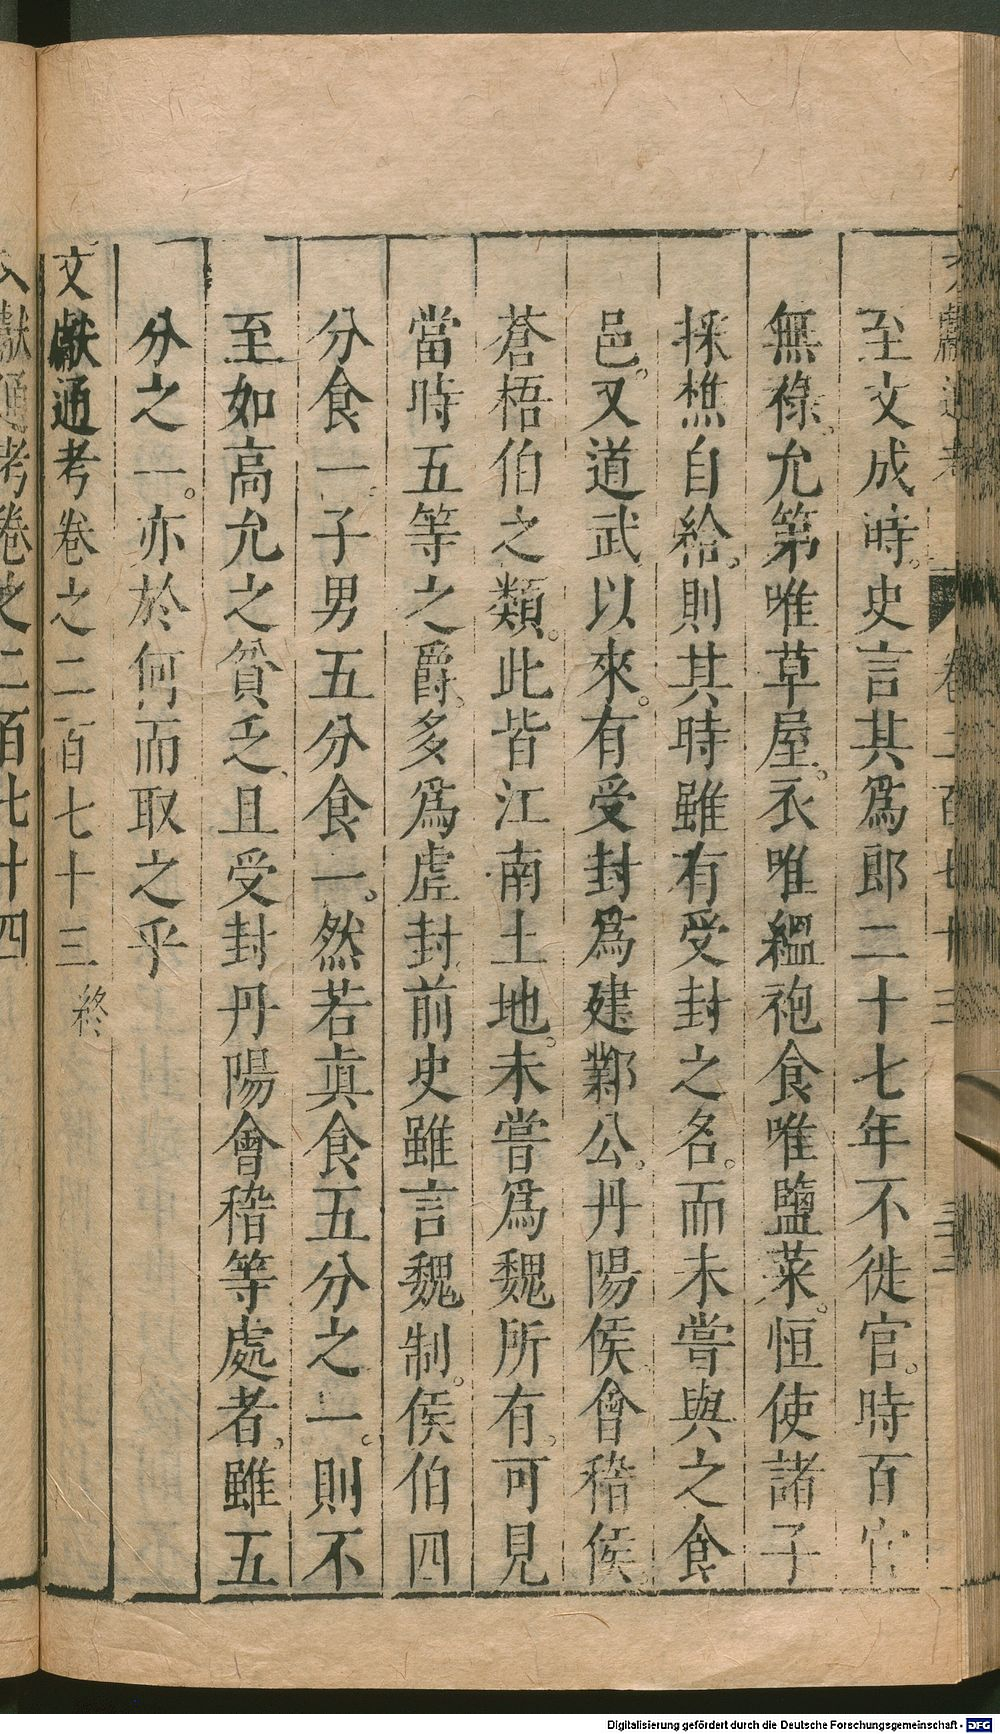 至文成時。史言其爲郎二十七年不徙官。時百官
無祿。允第唯草屋。衣唯縕袍食唯鹽菜。恒使諸子
採樵自給。則其時雖有受封之名。而未嘗與之食
邑。又道武以來。有受封爲建鄴公。丹陽侯會稽侯
蒼梧伯之類。此皆江南土地。未嘗爲魏所有。可見
當時五等之爵。多爲虛封前史雖言魏制。侯伯四
分食一。子男五分食一。然若眞食五分之一。則不
至如高允之貧乏。且受封丹陽會稽等處者。雖五
分之一。亦於何而取之乎
文獻通考卷之二百七十三 終
獻通考卷之二百七十四
Digitalisierung gefördert durch die Deutsche Forschungsgemeinschaft - DFG